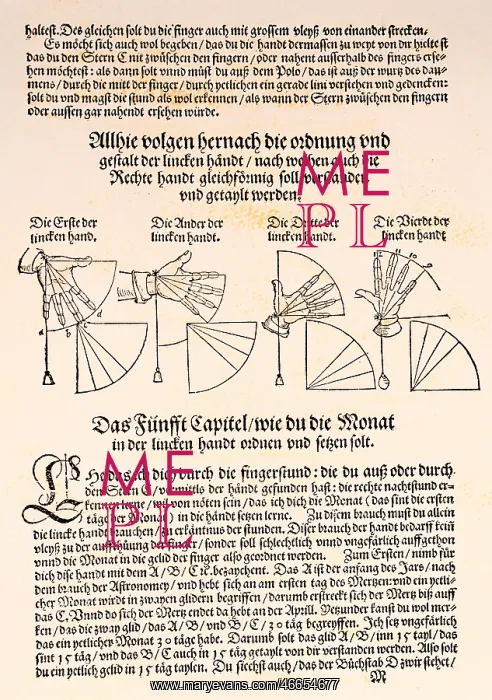 haltest. Des gleichen solt du die finger auch mit grossem vleyß von einander strecken.
Es möcht sich auch wol begeben / das du die handt dermassen zu weyt von dir hieltest
das du den Stern C nit zwüschen den fingern / oder nahent ausserhalb des fingers erse-
hen möchtest : als dann solt vnnd müst du auß dem Polo / das ist auß der wurtz des dau-
mens / durch die mitt der finger / durch yetlichen ein gerade lini verstehen vnd gedencken :
solt du vnd magst die stund als wol erkennen / als wann der Stern zwüschen den fingern
oder aussen gar nahendt ersehen würde.
Allhie volgen hernach die ordnung vnd
gestalt der lincken händt / nach wölchen auch die
Rechte handt gleichförmig soll verstanden
vnd getaylt werden.
ME
PL
Die Erste der
lincken hand,
Die Ander der
lincken handt.
Die Dritte der
lincken handt.
Die Vierdt der
lincken handt
a
b
c
d
12
Das Fünfft Capitel / wie du die Monat
in der lincken handt ordnen vnd setzen solt.
ME
PL
durch die fingerstund : die du auß oder durch
den Stern C / vermittls der händt gefunden hast : die rechte nachtstund er-
kennen / wil von nöten sein / das ich dich die Monat ( das sint die ersten
täge der Monat ) in die händt setzen lerne. Zu disem brauch must du allein
die lincke handt brauchen / zu erkäntnus der stunden. Diser brauch der handt bedarff kein
vleyß zu der außthüung der finger / sonder soll schlechtlich vnnd vngefärlich auffgethon
vnnd die Monat in die gelid der finger also geordnet werden. Zum Ersten / nimb für
dich dise handt mit dem A / B / C ic. bezaychent. Das A ist der anfang des Jars / nach
dem brauch der Astronomey / vnd hebt sich an am ersten tag des Mertzen : vnd ein yetli-
cher Monat wirdt in zwayen glidern begriffen / darumb erstreckt sich der Mertz biß auff
das C. Vnnd do sich der Mertz endet da hebt an der Aprill. Yetzunder kanst du wol mer-
ken / das die zway glid / das A / B / vnd B / C / 30 täg begreyffen. Ich setz vngefärlich
das ein yetlicher Monat 30 täge habe. Darumb solt das glid A / B / inn 15 tayl / das
sint 15 täg / vnd das B / C auch in 15 täg getaylt von dir verstanden werden. Also solt
du ein yetlich gelid in 15 täg taylen. Du siechst auch / das der Büchstab D zwir stehet /
M
www.maryevans.com/46654677